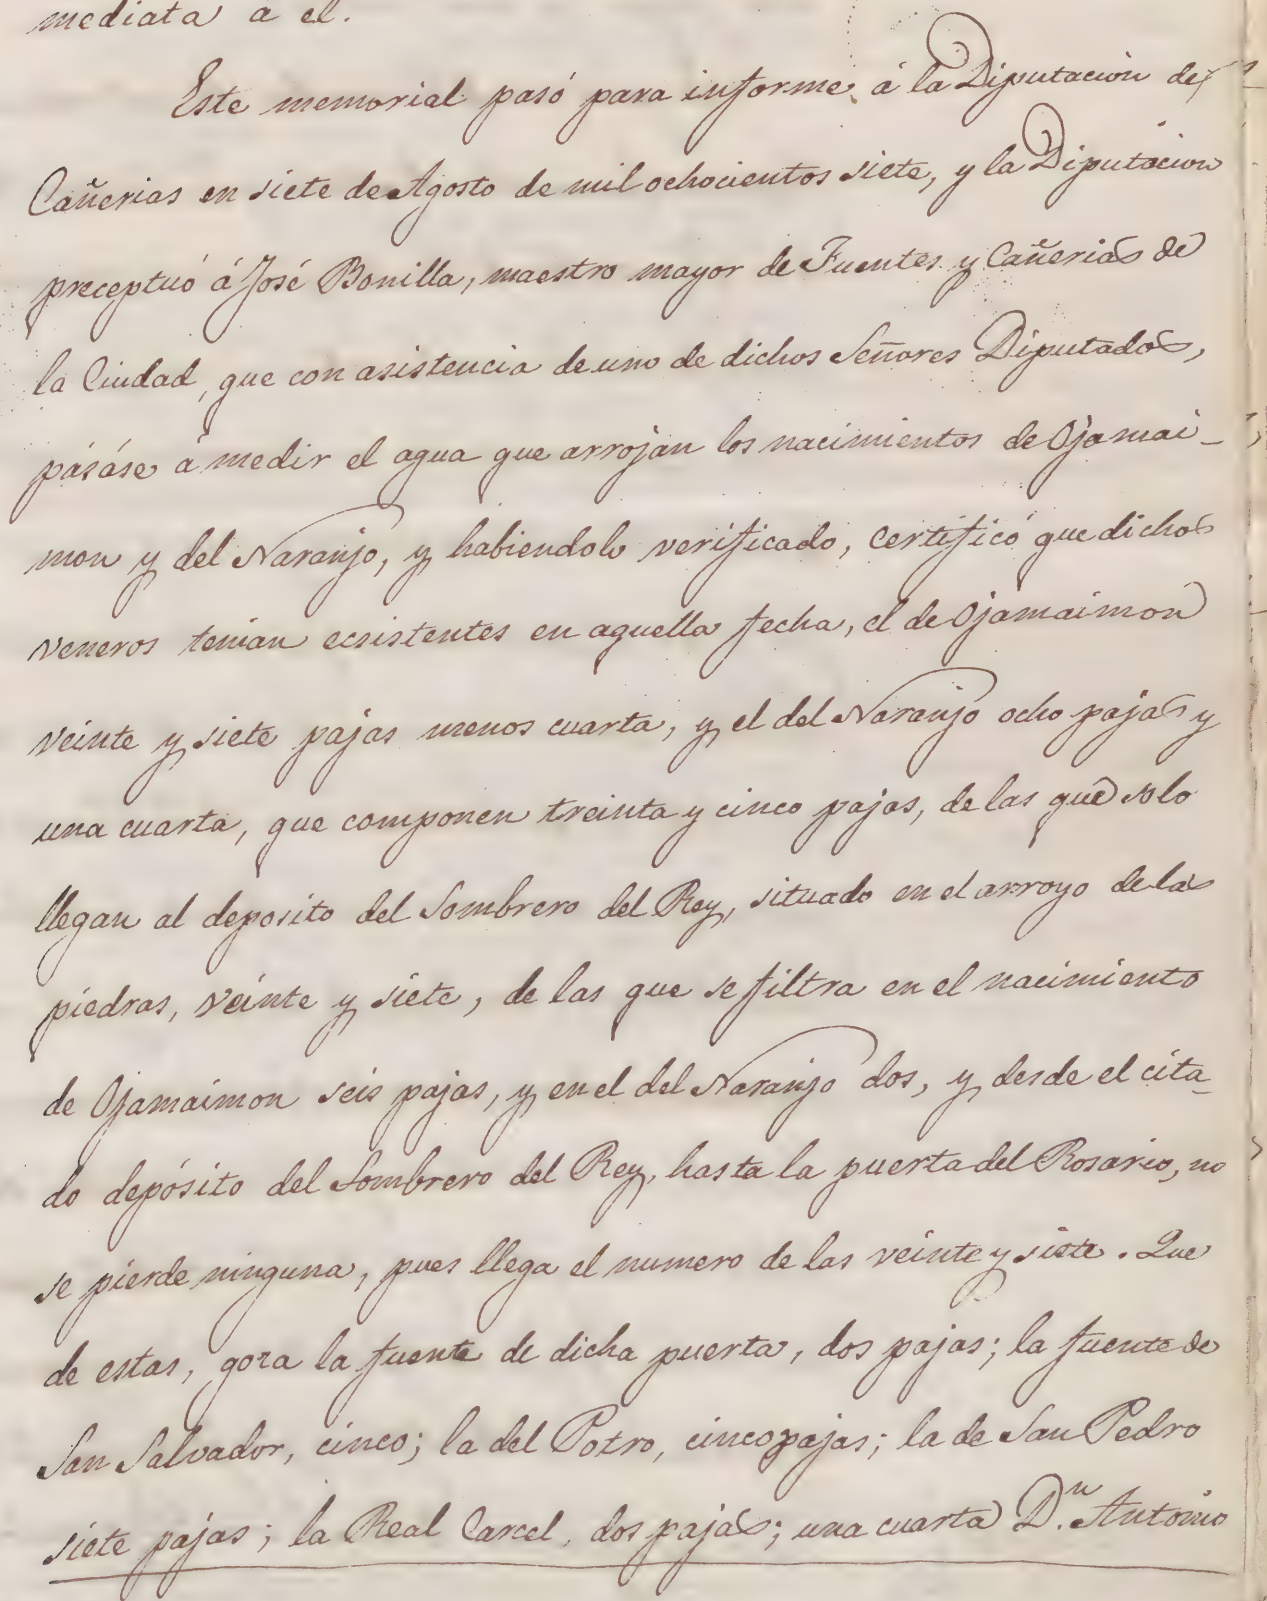 mediata a el.
Este memorial pasó para informe á la Diputacion de
Cañerias en siete de Agosto de mil ochocientos siete, y la Diputacion
preceptuó á José Bonilla, maestro mayor de Fuentes y Cañerias de
la Ciudad, que con asistencia de uno de dichos Señores Diputados,
pásáse á medir el agua que arrojan los nacimientos de Ojamai-
mon y del Naranjo, y habiendolo verificado, certificó que dichos
veneros tenian ecsistentes en aquella fecha, el de Ojamaimon
veinte y siete pajas menos cuarta, y el del Naranjo ocho pajas y
una cuarta, que componen treinta y cinco pajas, de las que solo
llegan al deposito del Sombrero del Rey, situado en el arroyo de las
piedras, veinte y siete, de las que se filtra en el nacimiento
de Ojamaimon seis pajas, y en el del Naranjo dos, y desde el cita-
do depósito del Sombrero del Rey, hasta la puerta del Rosario, no
se pierde ninguna, pues llega el numero de las veinte y siete. Que
de estas, goza la fuente de dicha puerta, dos pajas; la fuente de
San Salvador, cinco; la del Potro, cinco pajas; la de San Pedro
siete pajas; la Real Carcel, dos pajas; una cuarta D.n Antonio